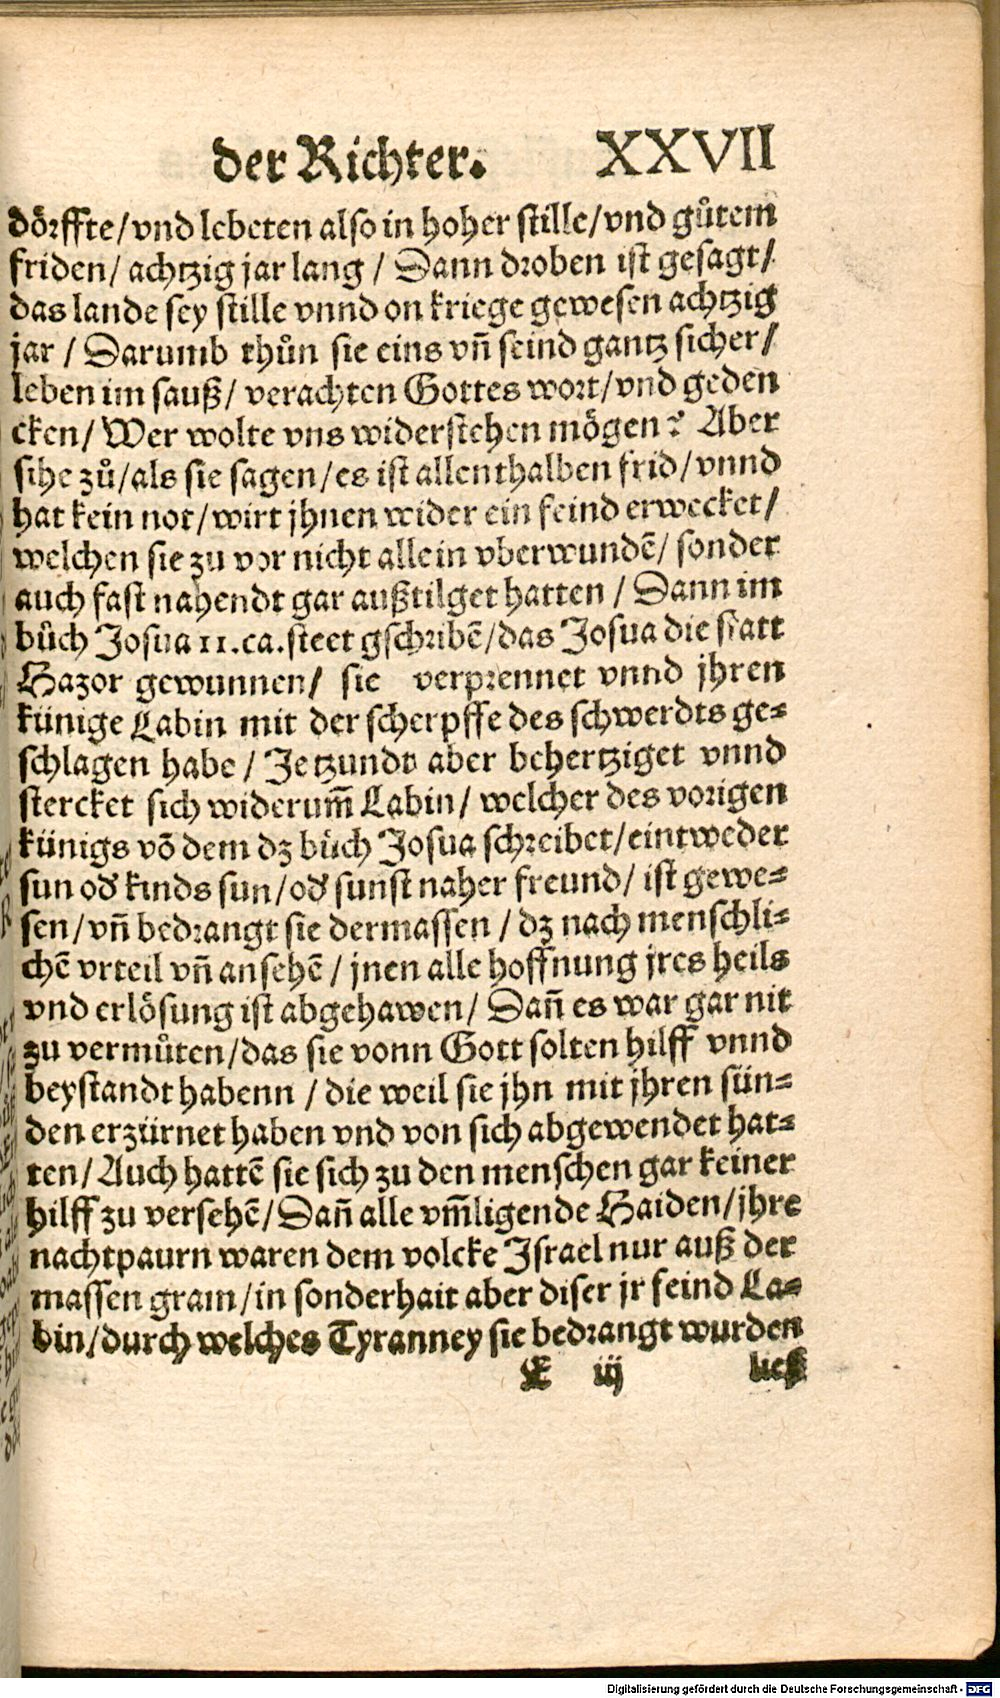 der Richter. XXVII
dörffte/vnd lebeten also in hoher stille/vnd gůtem
friden/ achtzig jar lang / Dann droben ist gesagt/
das lande sey stille vnnd on kriege gewesen achtzig
jar / Darumb thůn sie eins vñ seind gantz sicher/
leben im sauß/ verachten Gottes wort/vnd geden
cken/ Wer wolte vns widerstehen mögen? Aber
sihe zů/als sie sagen/es ist allenthalben frid/vnnd
hat kein not/wirt jhnen wider ein feind erwecket/
welchen sie zu vor nicht allein vberwundē/ sonder
auch fast nahendt gar außtilget hatten / Dann im
bůch Josua 11.ca.steet gschribē/das Josua die statt
Hazor gewunnen/ sie verprennet vnnd jhren
künige Labin mit der scherpffe des schwerdts ge-
schlagen habe / Jetzundt aber behertziget vnnd
stercket sich widerum̃ Labin/ welcher des vorigen
künigs võ dem dz bůch Josua schreibet/eintweder
sun od' kinds sun/od' sunst naher freund/ ist gewe-
sen/vñ bedrangt sie dermassen / dz nach menschli-
chē vrteil vñ ansehē / jnen alle hoffnung jres heils
vnd erlösung ist abgehawen/ Dañ es war gar nit
zu vermůten/das sie vonn Gott solten hilff vnnd
beystandt habenn / die weil sie jhn mit jhren sün-
den erzürnet haben vnd von sich abgewendet hat-
ten/ Auch hattē sie sich zu den menschen gar keiner
hilff zu versehē/Dañ alle vm̃ligende Haiden/jhre
nachtpaurn waren dem volcke Israel nur auß der
massen gram/in sonderhait aber diser jr feind La-
bin/durch welches Tyranney sie bedrangt wurden
E iij ließ
Digitalisierung gefördert durch die Deutsche Forschungsgemeinschaft - DFG